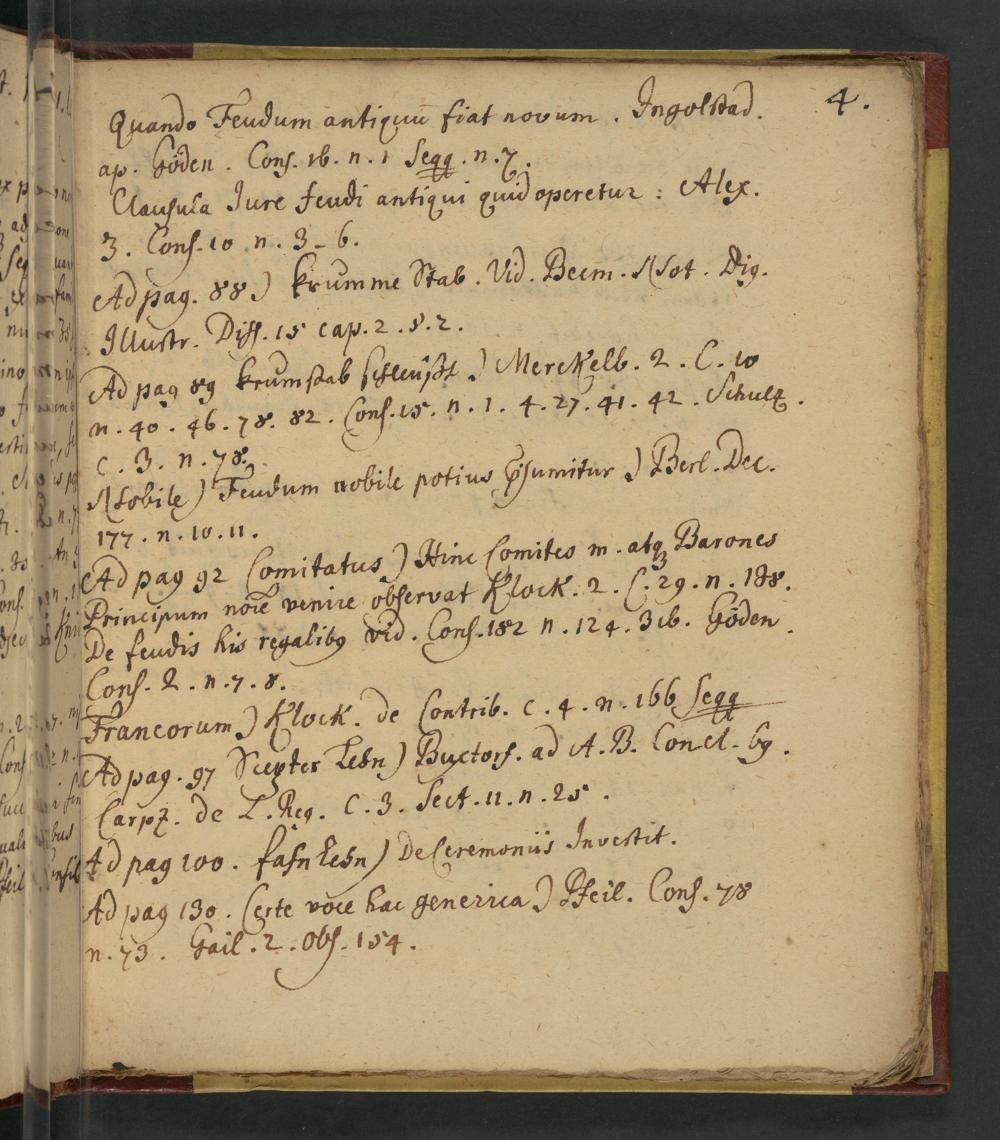 4.
Quando Feudum antiquū fiat novum. Ingolstad.
ap. Göden. Cons. 16. n. 1 seqq. n. 7.
Clausula Jure feudi antiqui quid operetur: Alex.
3. Cons. 10 n. 3-6.
Ad pag. 88) Krumme Stab. Vid. Becm. Not. Dig.
Illustr. Diss. 15 cap. 2. §. 2.
Ad pag 89 Krumstab schleüßt) Merckelb. 2. C. 10
n. 40. 46. 78. 82. Cons. 15. n. 1. 4. 27. 41. 42. Schultz.
c. 3. n. 78.
Nobile) Feudum nobile potius p̄sumitur) Berl. Dec.
177. n. 10. 11.
Ad pag 92 Comitatus) Hinc Comites m. atq Barones
Principum noīe venire observat Klock. 2. C. 29. n. 188.
De feudis his regalibꝫ vid. Cons. 182 n. 124. 316. Göden.
Cons. 2. n. 7. 8.
Francorum) Klock. de Contrib. c. 4. n. 166 seqq
Ad pag. 97 Scepter Lehn) Buxtorf. ad A. B. Concl. 69.
Carpz. de L. Reg. C. 3. Sect. 11. n. 25.
Ad pag 100. fahn Lehn) De Ceremoniis Investit.
Ad pag 130. Certe voce hac generica) Pfeil. Cons. 78
n. 73. Gail. 2. Obs. 154.